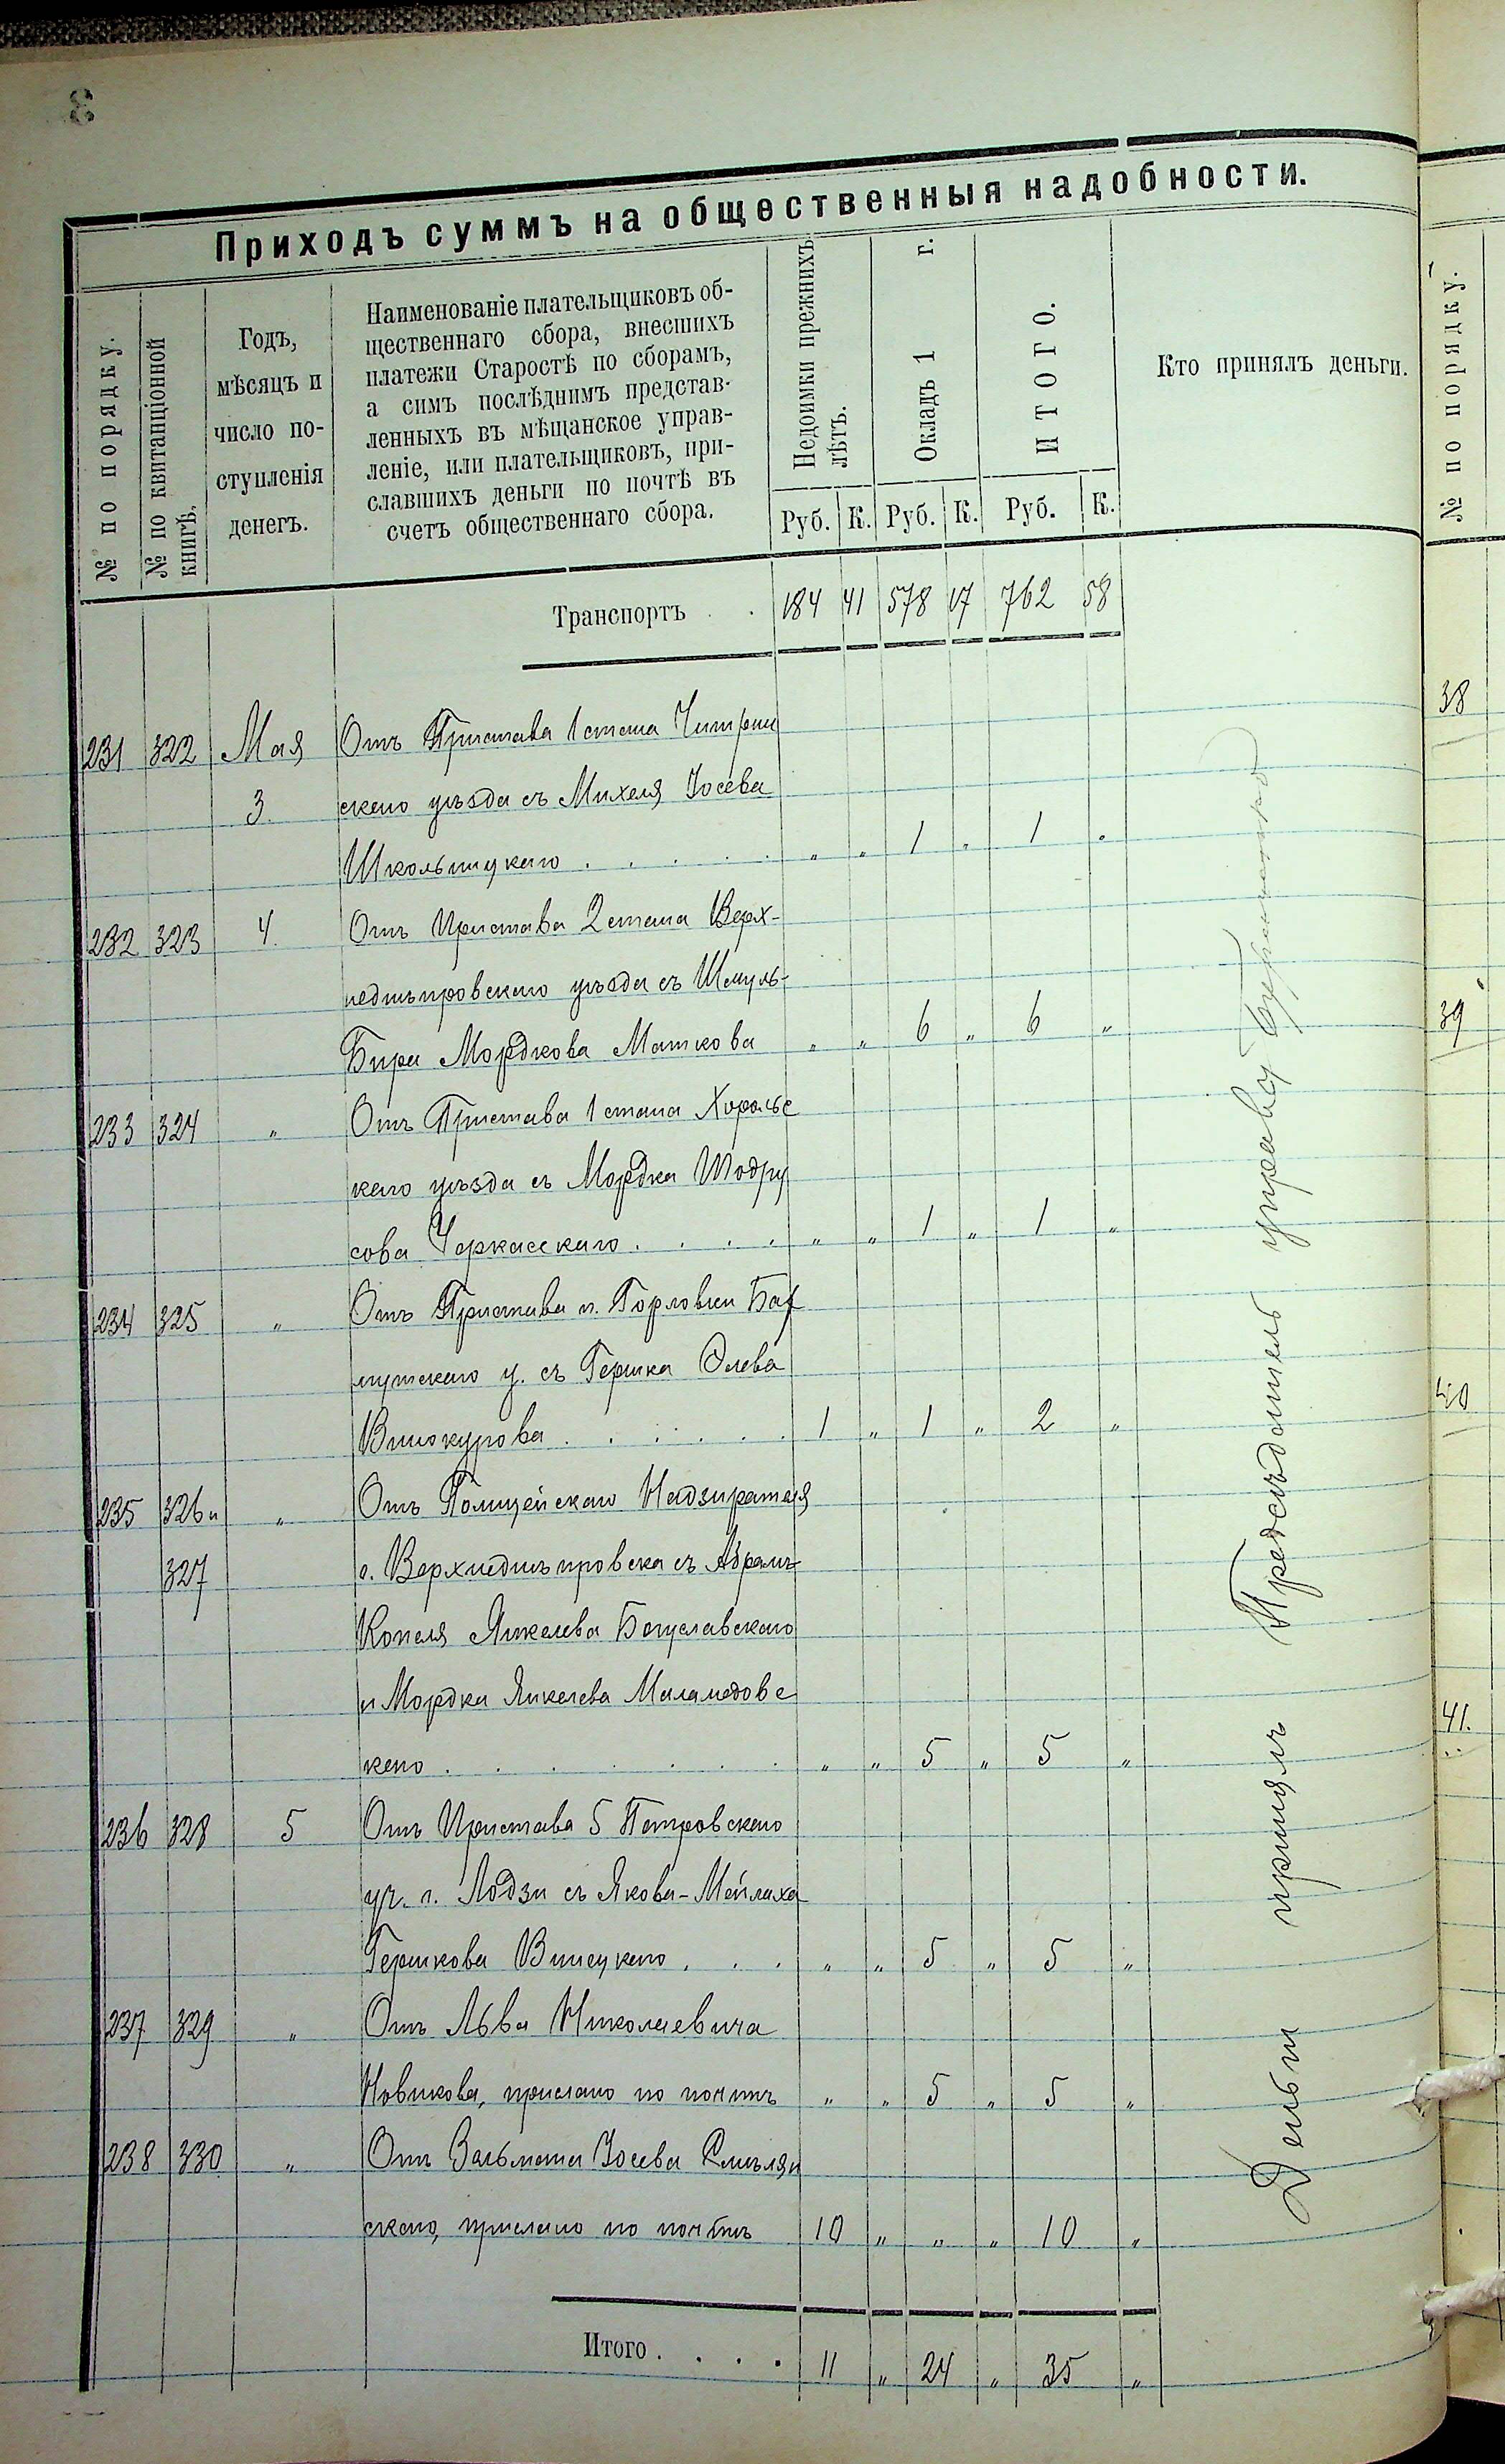 Приходъ суммъ на общественныя надобности.
№ по порядку.
№ по квитанціонной книгѣ.
Годъ,
мѣсяцъ и
число по-
ступленія
денегъ.
Наименованіе плательщиковъ об-
щественнаго сбора, внесшихъ
платежи Старостѣ по сборамъ,
а симъ послѣднимъ представ-
ленныхъ въ мѣщанское управ-
леніе, или плательщиковъ, при-
славшихъ деньги по почтѣ въ
счетъ общественнаго сбора.
Недоимки прежнихъ лѣтъ.
Окладъ 1 г.
ИТОГО.
Кто принялъ деньги.
Руб. К. Руб. К. Руб. К.
Транспортъ . . 184 41 578 17 762 58
231 322 Мая Отъ Пристава 1 стана Чигрин
3. скаго уѣзда съ Михеля Іосева
Школьницкаго . . . . . „ „ 1 „ 1 „
232 323 4. Отъ Пристава 2 стана Верх-
неднѣпровскаго уѣзда съ Шмуль-
Бира Мордкова Маткова „ „ 6 „ 6 „
233 324 „ Отъ Пристава 1 стана Хорольс
каго уѣзда съ Мордка
сова Черкасскаго . . . . „ „ 1 „ 1 „
234 325 „ Отъ Пристава п. Горловки Бах
мутскаго у. съ Гершка
Винокурова . . . . . . 1 „ 1 „ 2 „
235 326 и „ Отъ Полицейскаго Надзирателя
327 г. Верхнеднѣпровска съ Абрамъ
Копеля Янкелева Богуславскаго
и Мордка Янкелева Маламедовс
каго . . . . . . . „ „ 5 „ 5 „
236 328 5 Отъ Пристава 5 Петровскаго
уч. г. Лодзи съ Якова-Мейлаха
Гершкова Виницкаго . . . „ „ 5 „ 5 „
237 329 „ Отъ Льва Николаевича
Новикова, прислано по почтѣ „ „ 5 „ 5 „
238 330 „ Отъ Зальмана Іосева Смѣлян
скаго, прислано по почтѣ 10 „ „ „ 10 „
Итого . . . . 11 „ 24 „ 35 „
Деньги принялъ Предсѣдатель управы
№ по порядку.
38
39
40
41.